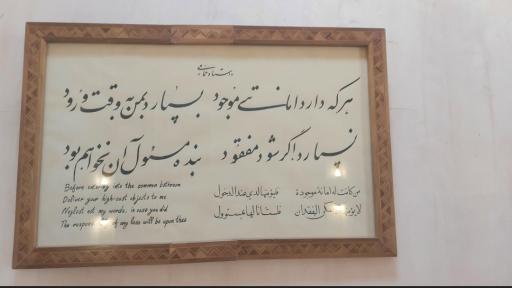 هر که دارد امانتی موجود بسپارد بمن به وقت ورود
نسپارد اگر شود مفقود بنده مسئول آن نخواهم بود
Before entering into the common bathroom
Deliver your high-cost objects to me
Neglect not my words, in case you did
The responsibility of my loss will be upon thee
من كانت له امانة موجودة فليؤتها لدي عند الدخول